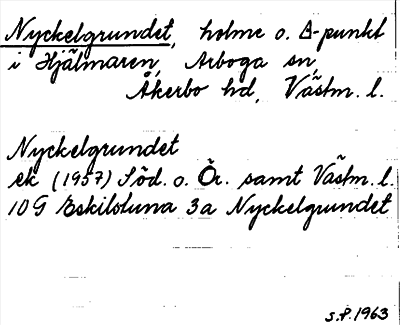 Nyckelgrundet, holme o. Δ-punkt
i Hjälmaren, Arboga sn,
Åkerbo hd, Västm. l.
Nyckelgrundet
ek (1957) Söd. o. Ör. samt Västm. l.
10G Eskilstuna 3a Nyckelgrundet
S.P. 1963